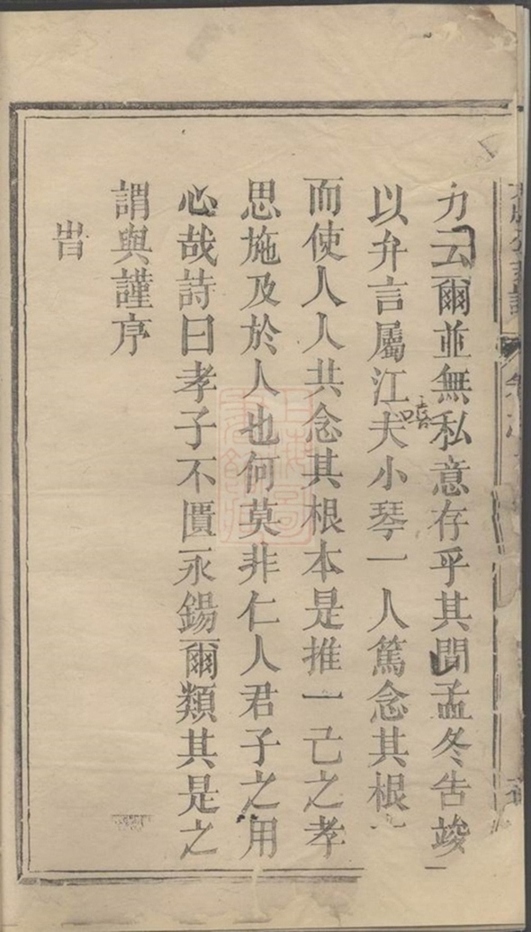 力云爾並無私意存乎其間孟冬告竣
以弁言屬江夫嘻小琴一人篤念其根
而使人人共念其根本是推一己之孝
思施及於人也何莫非仁人君子之用
心哉詩曰孝子不匱永錫爾類其是之
謂與謹序
旹